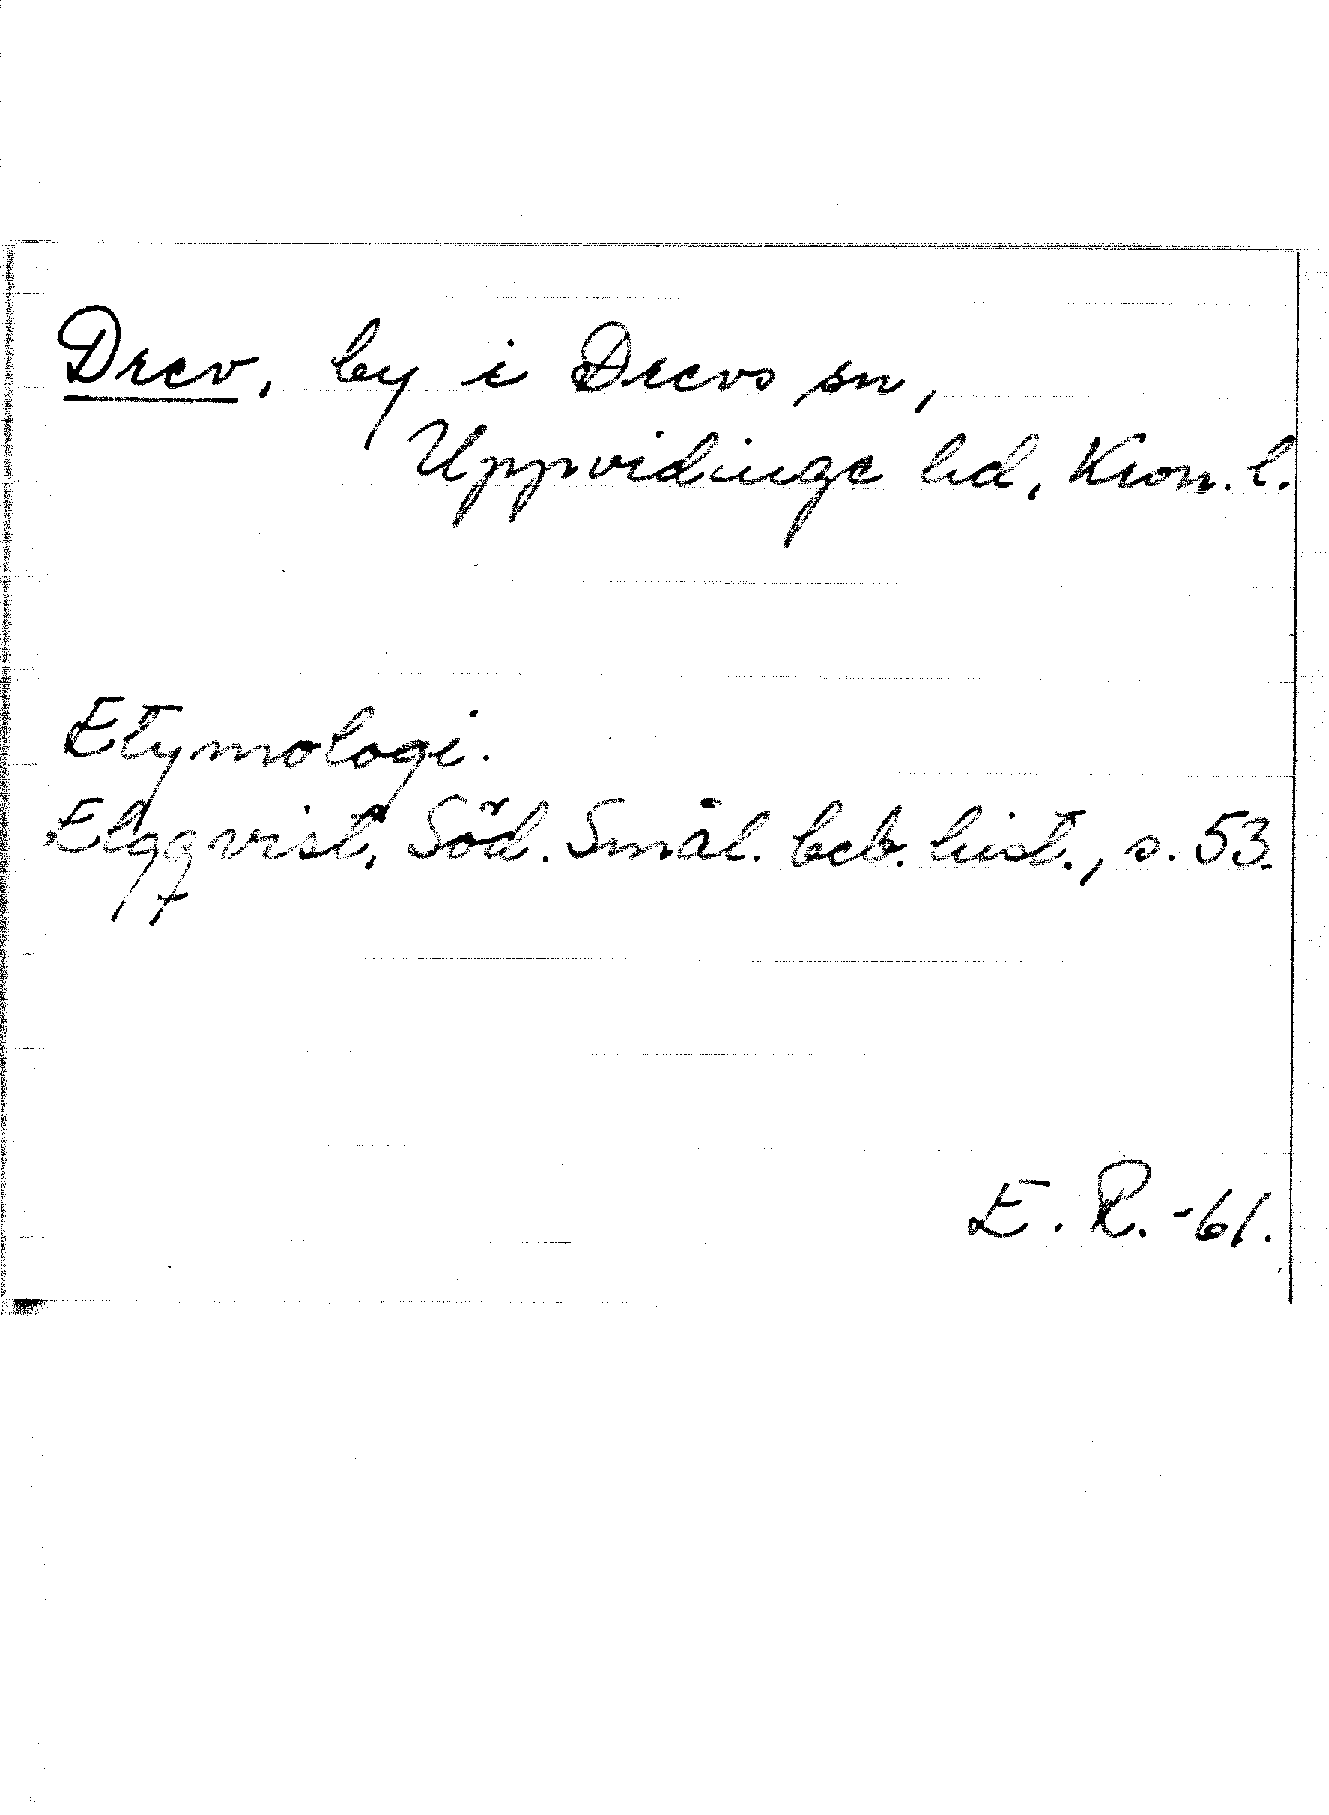 Drev, by i Drevs sn,
Uppvidinge hd, Kron. l.
Etymologi.
Elgqvist, Söd. Smål. beb. hist., s. 53.
E. R. -61.